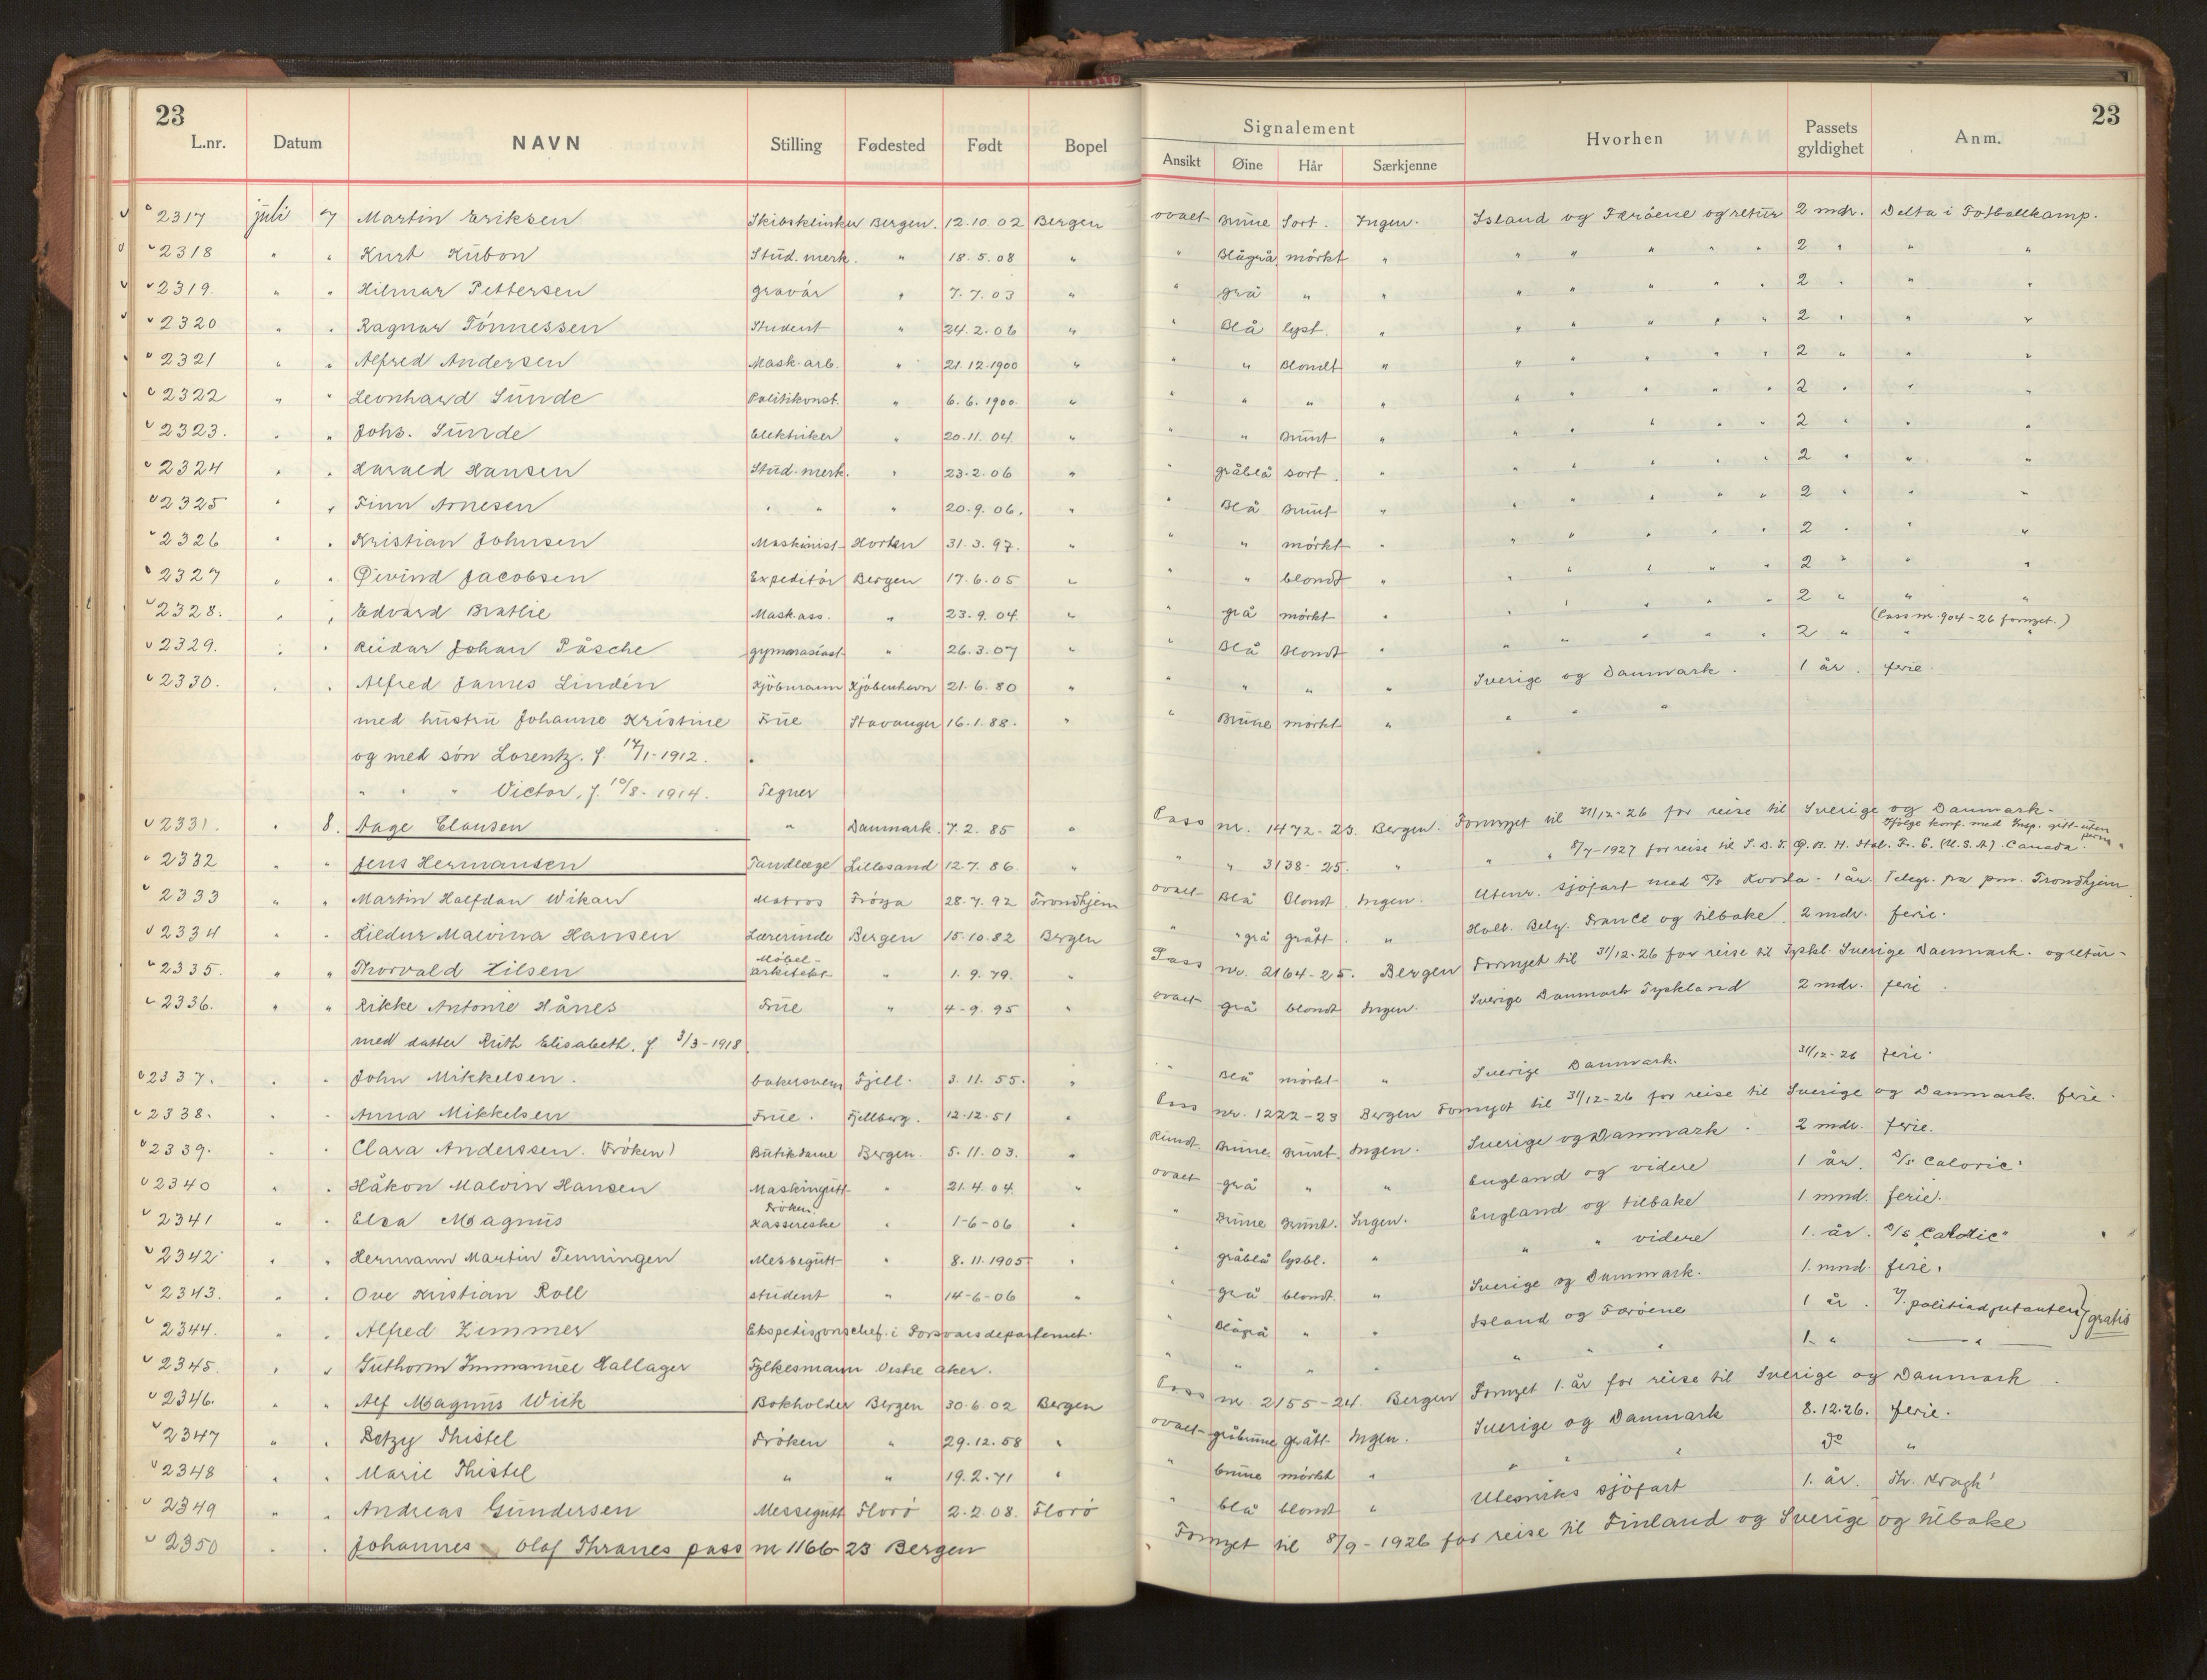 23
L.nr. Datum NAVN Stilling Fødested Født Bopel
Signalement
Ansikt Øine Hår Særkjenne Hvorhen Passets gyldighet Anm.
23
2317 juli 7 Martin Eriksen Skibsklinker Bergen. 12.10.02 Bergen ovalt Brune Sort. Ingen. Island og Færöene og retur 2 mdr. Delta i Fotballkamp.
2318 " " Kurt Kubon Stud. merk. " 18.5.08 " " Blågrå mörkt " " " " " " 2 " " "
2319. " " Hilmar Pettersen gravör " 7.7.03 " " grå " " " " " " " 2 " " "
2320 " " Ragnar Tönnessen Student " 24.2.06 " " Blå lyst. " " " " " " 2 " " "
2321 " " Alfred Andersen Mask. arb. " 21.12.1900 " " " Blondt " " " " " " 2 " " "
2322 " " Leonhard Sunde Politikonst. " 6.6.1900. " " " " " " " " " " 2 " " "
2323. " " Johs. Sunde Elektriker " 20.11.04. " " " Brunt " " " " " " 2 " " "
2324 " " Harald Hansen Stud. merk. " 23.2.06 " " gråblå sort. " " " " " " 2 " " "
2325 " " Finn Arnesen " " " 20.9.06. " " Blå Brunt " " " " " " 2 " " "
2326 " " Kristian Johnsen Maskinist Horten 31.3.97. " " " mörkt " " " " " " 2 " " "
2327 " " Øivind Jacobsen Expeditör Bergen 17.6.05 " " " blondt " " " " " " 2 " " "
2328. " " Edvard Bratlie Mask.ass. " 23.9.04. " " grå mörkt " " " " " " 2 " " "
2329. " " Reidar Johan Påsche gymnasiast " 26.3.07 " " Blå Blondt " " " " " " 2 " (Pass nr. 904-26 fornyet.) " "
2330. " " Alfred James Lindén Kjöbmann Kjöbenhavn 21.6.80 " " " " " Sverige og Danmark. 1 år. ferie.
med hustru Johanne Kristine Frue Stavanger 16.1.88. " " Brune mörkt " " " "
og med sön Lorentz. f. 17/1-1912.
" " " Victor, f. 10/8-1914. Tegner
2331. " 8. Aage Clausen " Danmark. 7.2.85 " Pass nr. 1472-23. Bergen. Fornyet til 31/12-26 for reise til Sverige og Danmark.
2332 " " Jens Hermansen Tandlæge Lillesand 12.7.86. " " " 3138-25. " " " 8/7-1927 for reise til S. D. T. G. B. H. Ital. Fr. E. (U.S.A) Canada. Ifölge konf. med Insp. gitt uten
2333 " " Martin Halfdan Wikan Matros Fröya 28.7.92 Trondhjem ovalt Blå Blondt Ingen. Utenr. sjöfart med S/S Korsla. 1 år. Telegr. fra pm. Trondhjem
2334 " " Hildur Malvina Hansen Lærerinde Bergen 15.10.82 Bergen " grå grått. " Holl. Belg. France og tilbake. 2 mdr. ferie.
2335. " " Thorvald Hilsen Möbel-arkitekt " 1.9.79. " Pass nr. 2164-25. Bergen Fornyet til 31/12-26 for reise til Tyskl. Sverige Danmark. og retur-
2336. " " Rikke Antonie Hånes Frue " 4-9.95 " ovalt grå blondt Ingen. Sverige Danmark Tyskland 2 mdr. ferie.
med datter Ruth Elisabeth. f. 3/3-1918.
2337. " " John Mikkelsen. bakersvenn Fjell. 3.11.55. " " Blå mörkt " Sverige Danmark. 31/12-26 ferie.
2338. " " Anna Mikkelsen Frue. Fjellberg. 12-12.51 " Pass nr. 1222-23 Bergen Fornyet til 31/12-26 for reise til Sverige og Danmark. ferie.
2339. " " Clara Anderssen. (Fröken) Butikdame Bergen. 5.11.03. " Rundt. Brune Brunt. Ingen. Sverige og Danmark. 2 mdr. ferie.
2340 " " Håkon Malvin Hansen Maskingutt " 21.4.04. " ovalt grå " " England og videre 1 år. S/S Caloric"
2341 " " Elsa Magnus Fröken Kassererske " 1-6-06 " " Brune Brunt. Ingen. England og tilbake 1 mnd. ferie.
2342 " " Hermann Martin Tenningen Messegutt " 8.11.1905 " " gråblå lysbl. " " " videre 1. år. S/S "Caloric"
2343. " " Ove Kristian Roll student " 14-6-06 " " grå blondt. " Sverige og Danmark. 1. mnd. ferie.
2344. " " Alfred Zimmer Ekspedisjonschef. i Forsvarsdepartemet. " Blågrå " " Island og Færöene 1 år. V. politiadjutanten gratis
2345. " " Guthorm Immanuel Hallager Fylkesmann Vestre Aker. " " " " " " " 1. " "
2346. " " Alf Magnus Wiik Bokholder Bergen 30.6.02 Bergen Pass nr 2155-24. Bergen Fornyet 1. år for reise til Sverige og Danmark.
2347 " " Betzy Thistel Fröken " 29.12.58 " ovalt gråbrune grått Ingen. Sverige og Danmark 8.12.26. ferie.
2348 " " Marie Thistel " " 19.2.71 " " brune mörkt " " " " do "
2349 " " Andreas Gundersen Messegutt Florö 2.2.08. Florö " blå blondt " Utenriks sjöfart 1. år. Th. Kragh
2350 " " Johannes Olaf Thranes pass nr 1166-23 Bergen Fornyet til 8/9-1926 for reise til Finland og Sverige og tilbake